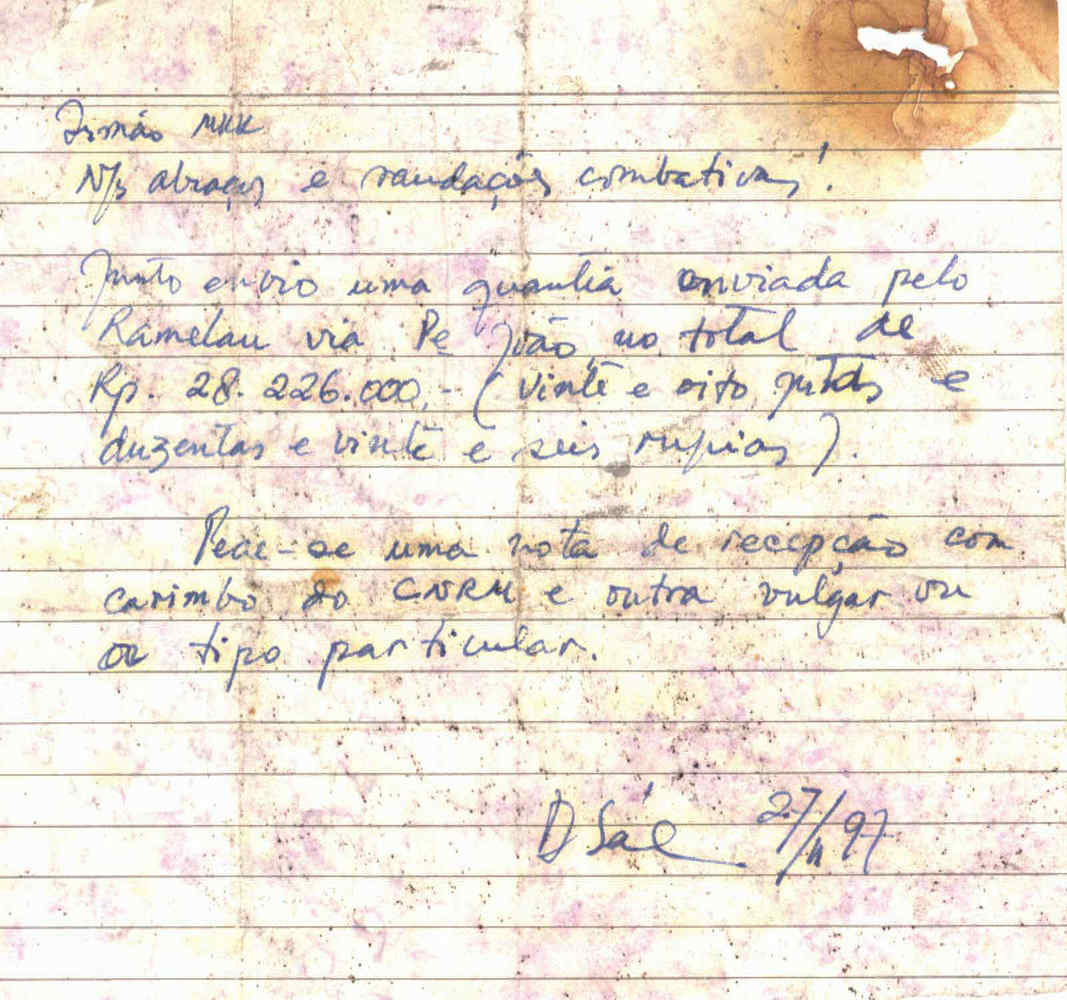 Irmão MKK
N/s abraços e saudações combativas!
Junto envio uma quantia enviada pelo
Ramelau via Pe João, no total de
Rp. 28.226.000,- (vinte e oito jutas e
duzentas e vinte e seis rupias).
Pede-se uma nota de recepção com
carimbo do CNRM e outra vulgar ou
ou tipo particular.
D Sáe 27/11/97